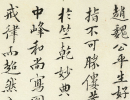 趙魏公平生好
指不可勝僂
於竺乾妙典
中峰和尚寫
戒律而超然